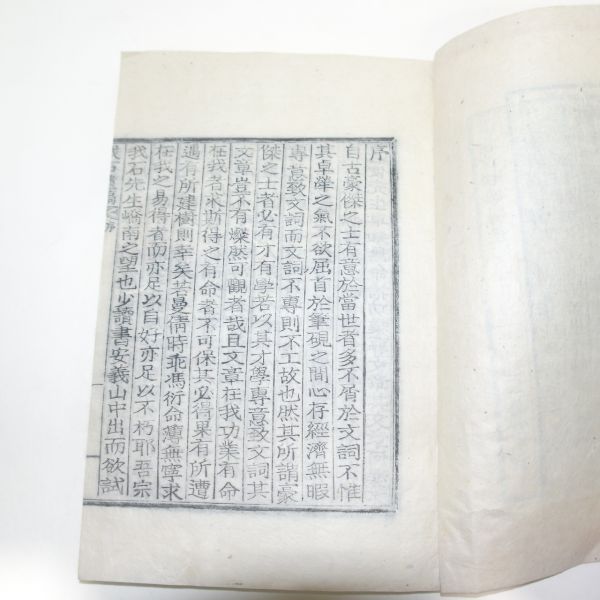 序
自古豪傑之士有意於當世者多不屑於文詞不惟
其卓犖之氣不欲屈首於筆硯之間心存經濟無暇
專意致文詞而文詞不專則不工故也然其所謂豪
傑之士者必有才有學若以其才學專意致文詞其
文章豈不有燦然可觀者哉且文章在我功業有命
在我者求斯得之有命者不可保其必得果有所遭
遇有所建樹則幸矣若曼倩時乖馮衍命薄無寧求
在我之易得者而亦足以自好亦足以不朽耶吾宗
我石先生嶠南之望也少讀書安義山中出而欲試